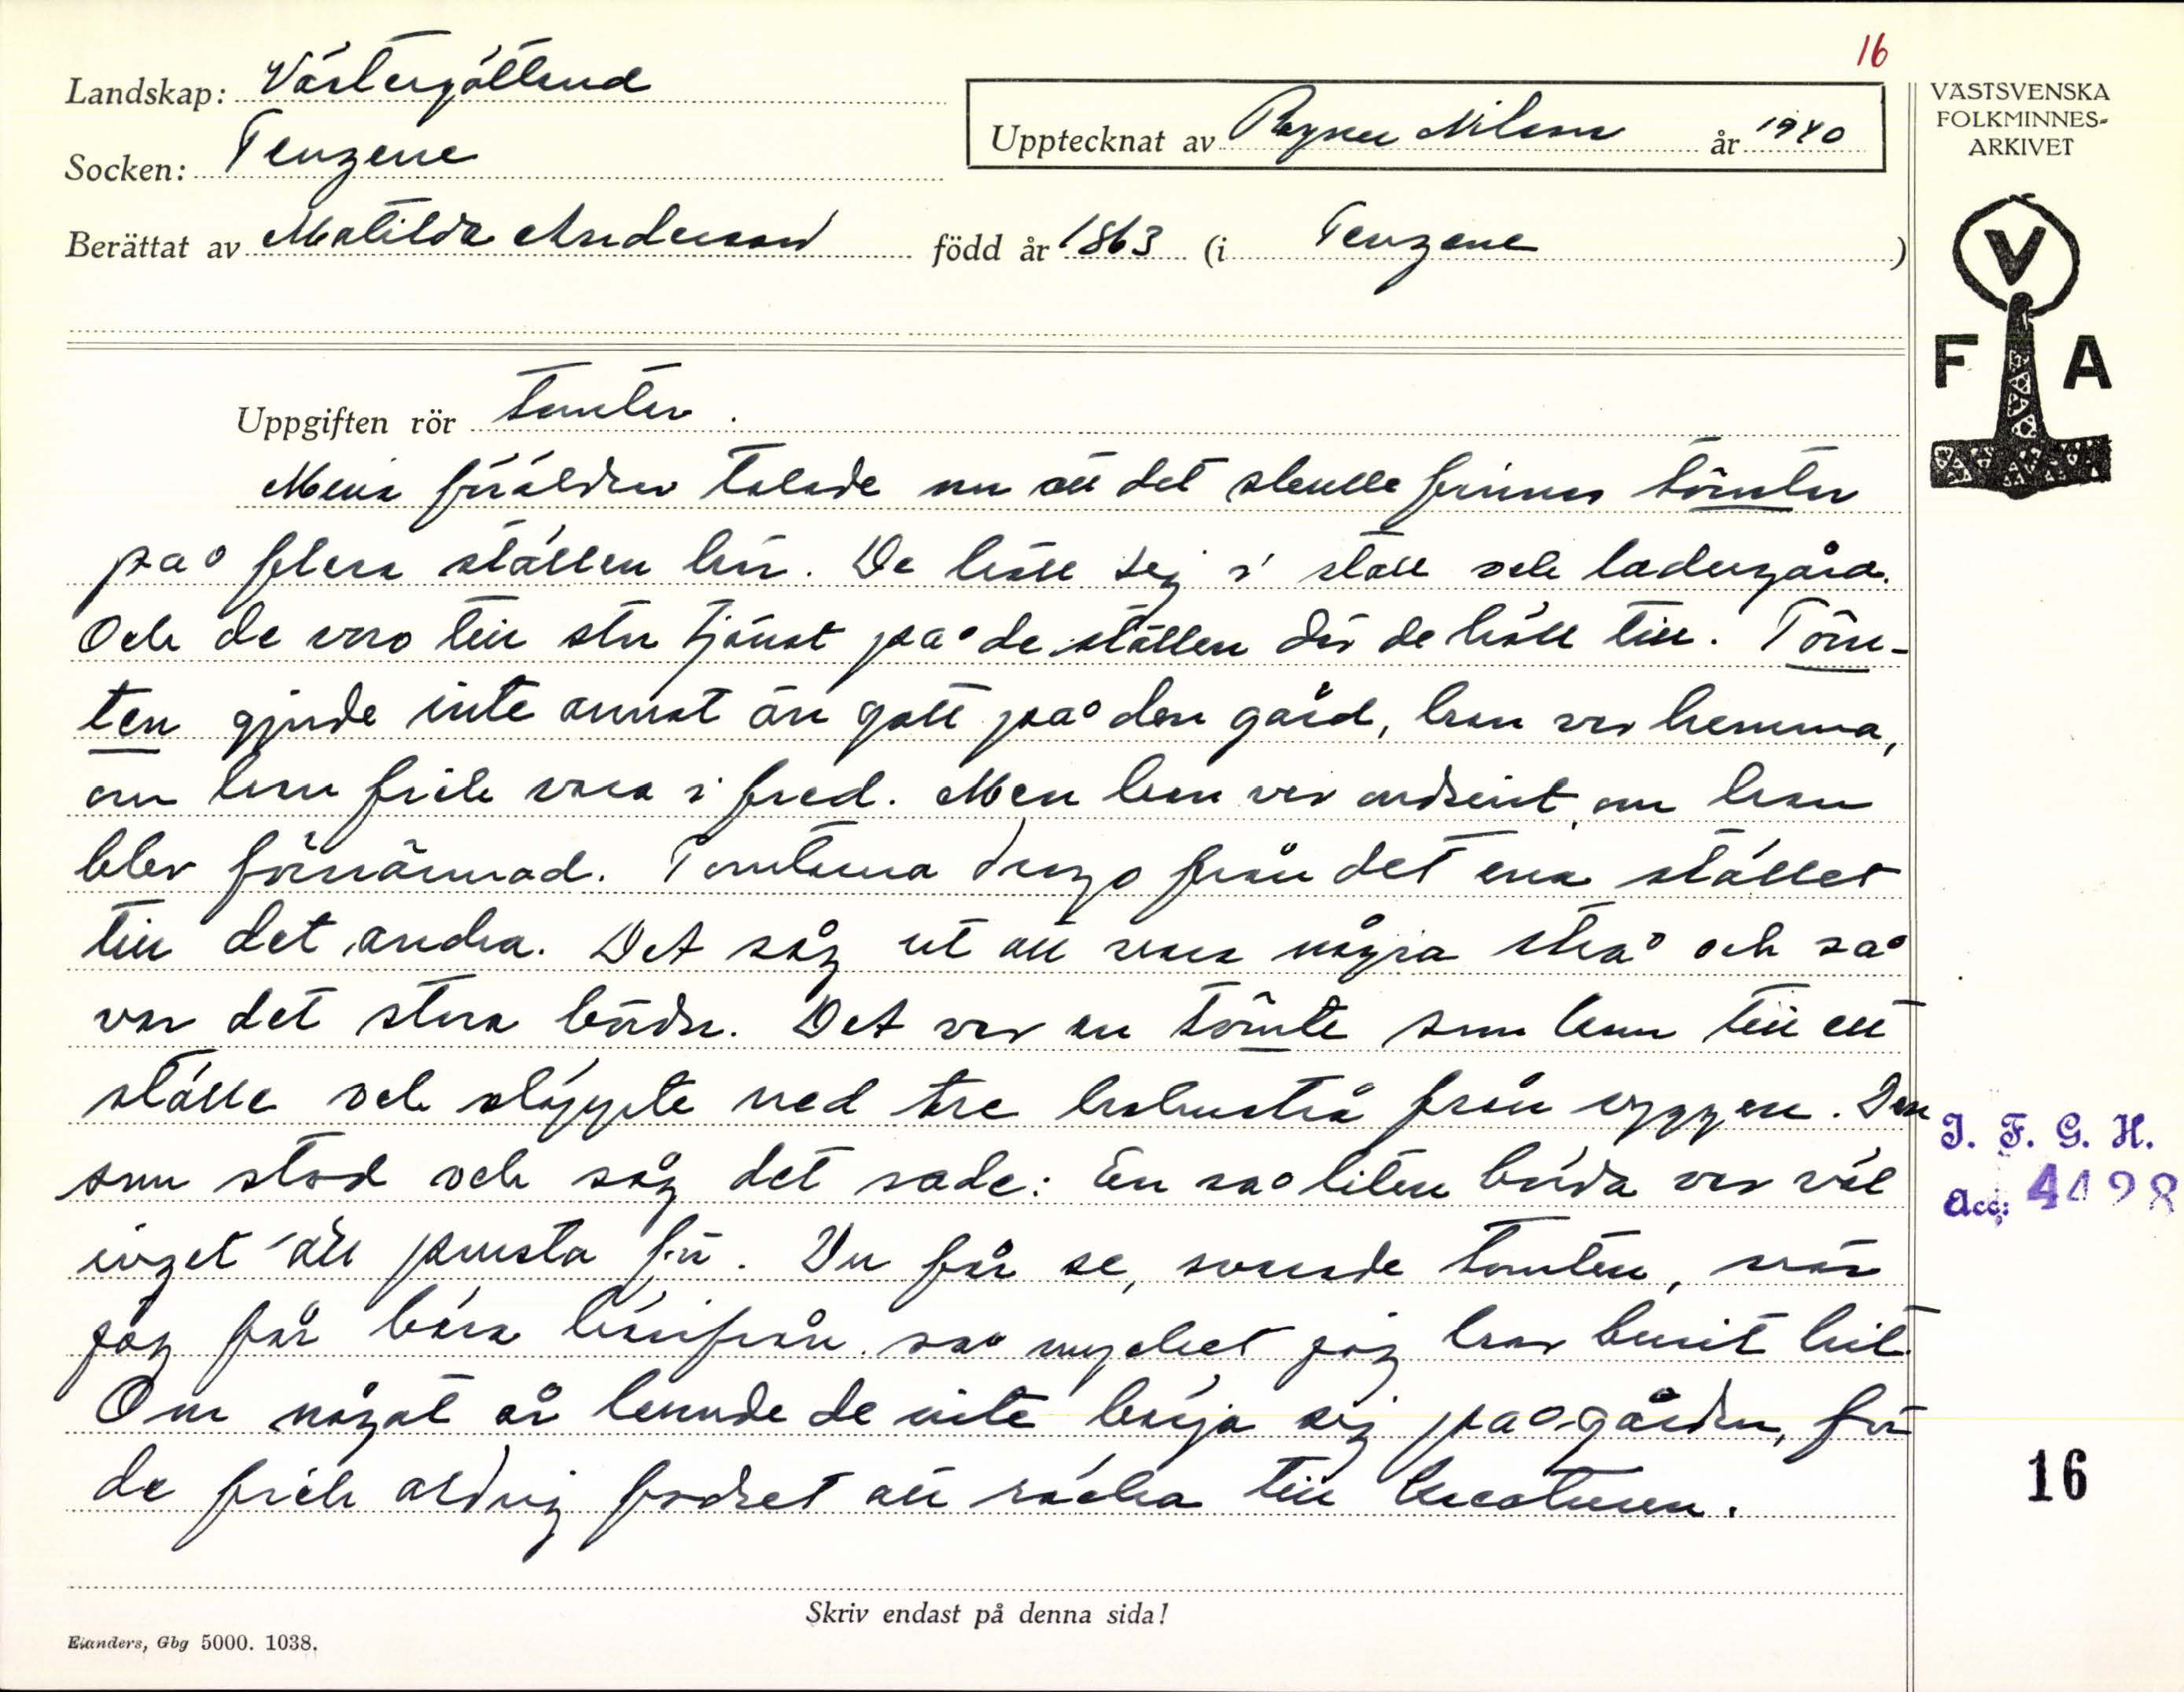 16
Landskap: Västergötland
Socken: Tengene
Upptecknat av Ragnar Nilsson år 1940
Berättat av Matilda Andersson född år 1863 (i Tengene)
VÄSTSVENSKA
FOLKMINNES-
ARKIVET
V
F A
Uppgiften rör Tomten.
Mina föräldrar talade om att det skulle finnas tömter
på flera ställen här. De höll sej i stall och ladugård.
Och de voro till stor tjänst på de ställen där de höll till. Töm-
ten gjorde inte annat än gott på den gård, han var hemma,
om han fick vara i fred. Men han var ondsint, om han
blev förnärmad. Tomtarna drogo från det ena stället
till det andra. Det såg ut att vara några strå och så
var det stora bördor. Det var en tömte som kom till ett
ställe och släppte ned tre halmstrå från ryggen. Den
som stod och såg det sade: En så liten börda var väl
inget att pusta för. Du får se, svarade tomten, när
jag får bära härifrån så mycket jag har burit hit.
Om något år kunde de inte bärja sig på gården, för
de fick aldrig fodret att räcka till kreaturen.
I. F. G. H.
Acc: 4498
16
Skriv endast på denna sida!
Elanders, Gbg 5000. 1038.